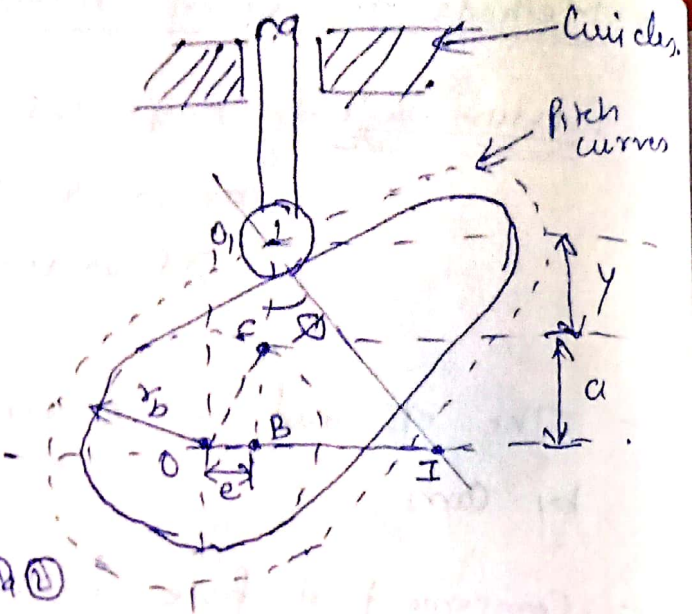 Cuicles.
Pitch
curves
O,
1
Ø
y
F
a
r_b
O
B
I
e